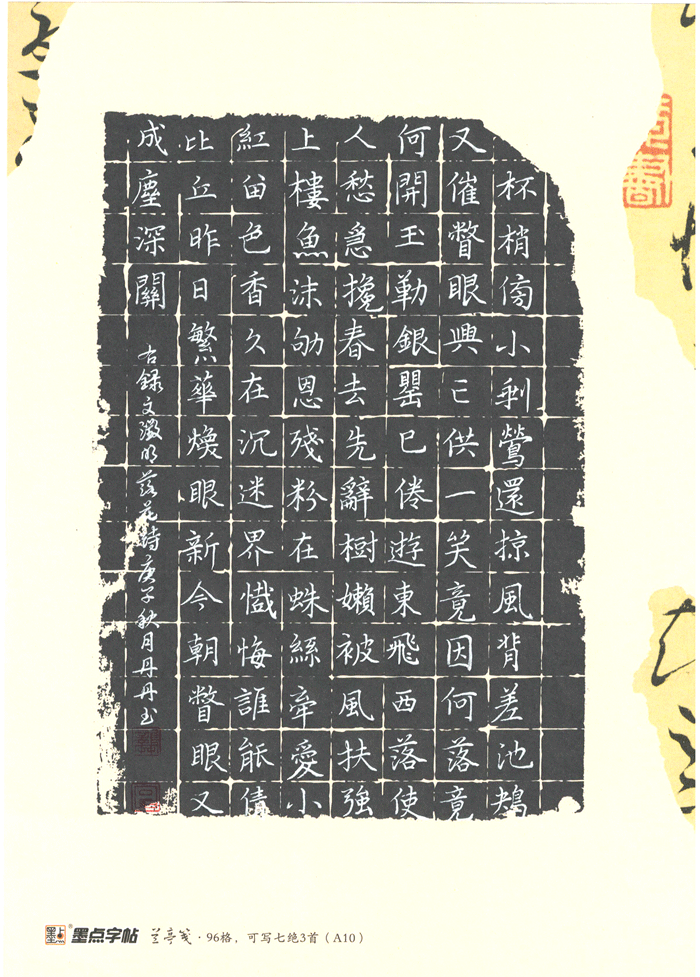 杯梢傍小剩鶯還掠風背差池
又催瞥眼興亡供一笑竟因何落竟
何開玉勒銀罌已倦遊東飛西落使
人愁急攙春去先辭樹嬾被風扶強
上樓魚沫劬恩殘粉在蛛絲牽愛小
紅留色香久在沉迷界懺悔誰能倩
比丘昨日繁華煥眼新今朝瞥眼又
成塵深關
古録文徵明落花詩庚子秋月丹丹书
墨点字帖 兰亭笺·96格,可写七绝3首(A10)